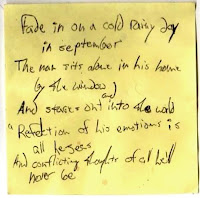 Fade in on a cold Rainy Day
in september
The man sits alone in his home
(by the window)
And stares out into the world
Reflection of his emotions is
all he sees
And conflicting thoughts of all hell
never be